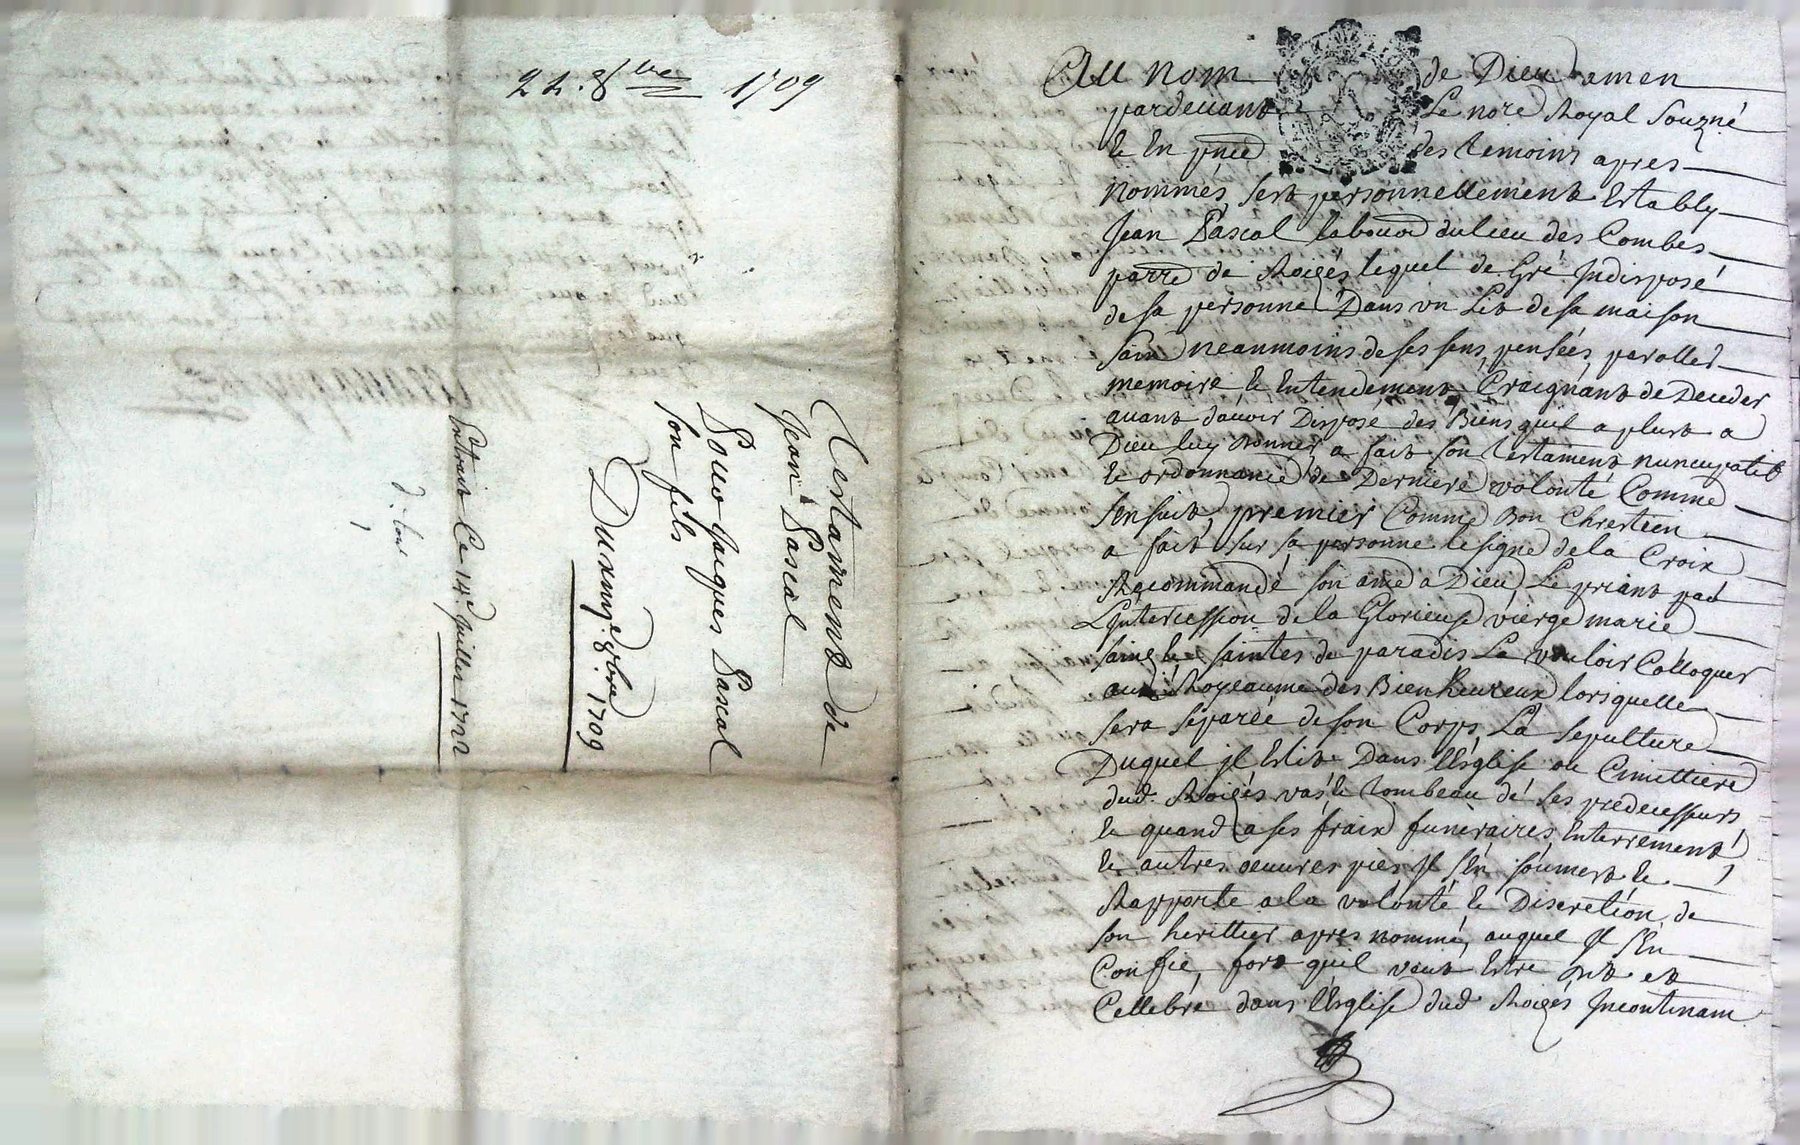 22. 8bre 1709
Testament de
Jean Pascal
Pour Jacques Pascal
son fils
Du xxijc 8bre 1709
Extrait Ce 14e Juillet 1722
Au nom de Dieu amen
pardevant Le nore Royal souzné
& En pnce des temoins apres
nommés, sest personnellement Estably
Jean Pascal labour du lieu des Combes
parre de lequel de Gré Indisposé
de sa personne Dans un Lit de sa maison
sain neanmoins de ses sens, pensées, parolles
memoire & Entendement, Craignant de Deceder
avant davoir Disposé des Biens quil a plust a
Dieu luy Donner a fait son testament nuncupatif
& ordonnance de Derniere volonté Comme
sensuit, premier Comme Bon Chrestien
a fait sur sa personne le signe de la Croix
Recommandé son ame a Dieu, Le priant par
L'Intercession de la Glorieuse vierge marie
saintz & saintes de paradis La vouloir Colloquer
au Royeaume des Bien heureux lorsquelle
sera séparée de son Corps, La sepulture
Duquel jl Eslit Dans l'Eglise ou Cimettiere
dud. & tombeau de ses predecesseurs
& quand a ses fraix funeraires, Enterrement
& autres oeuvres pies Jl s'En soumet &
Rapporte a la volonté & Discretion de
son herittier apres nommé, auquel Jl s'En
Confie, fors quil veut Estre dit et
Cellebré dans l'Eglise dud. Incontinant